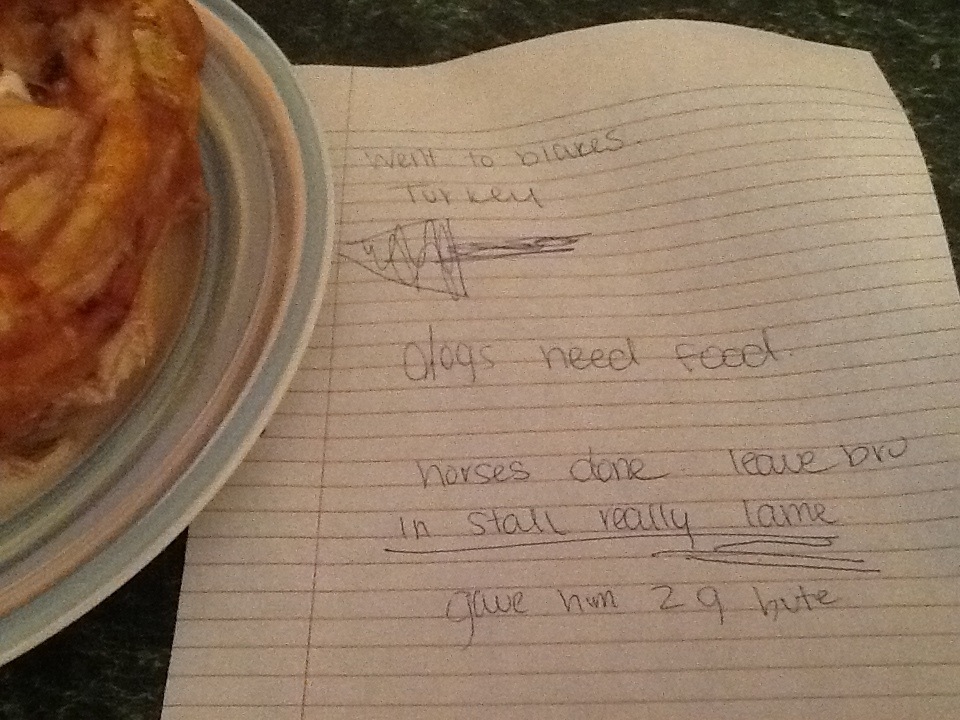 Went to blakes.
Turkey
dogs need food.
horses done. leave bro
in stall really lame
gave him 2 g bute